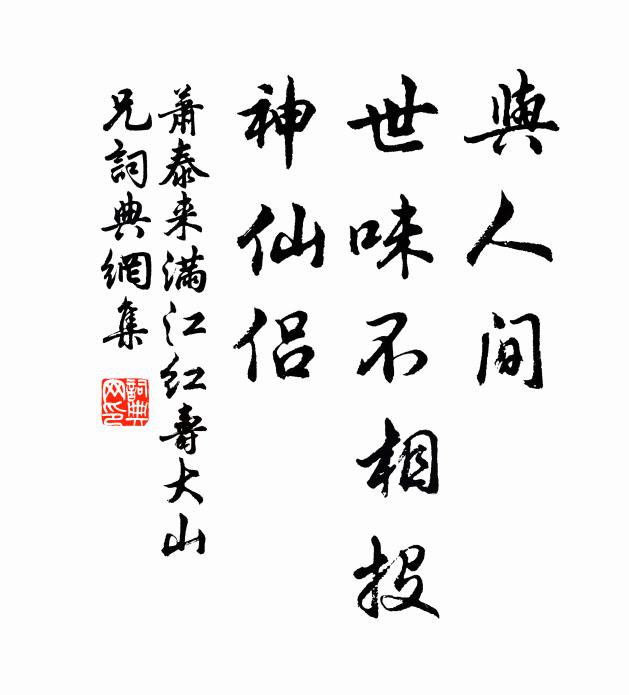 與人间
世味不相投
神仙侣
萧泰来满江红壽大山
兄詞典網集
詞典
网印